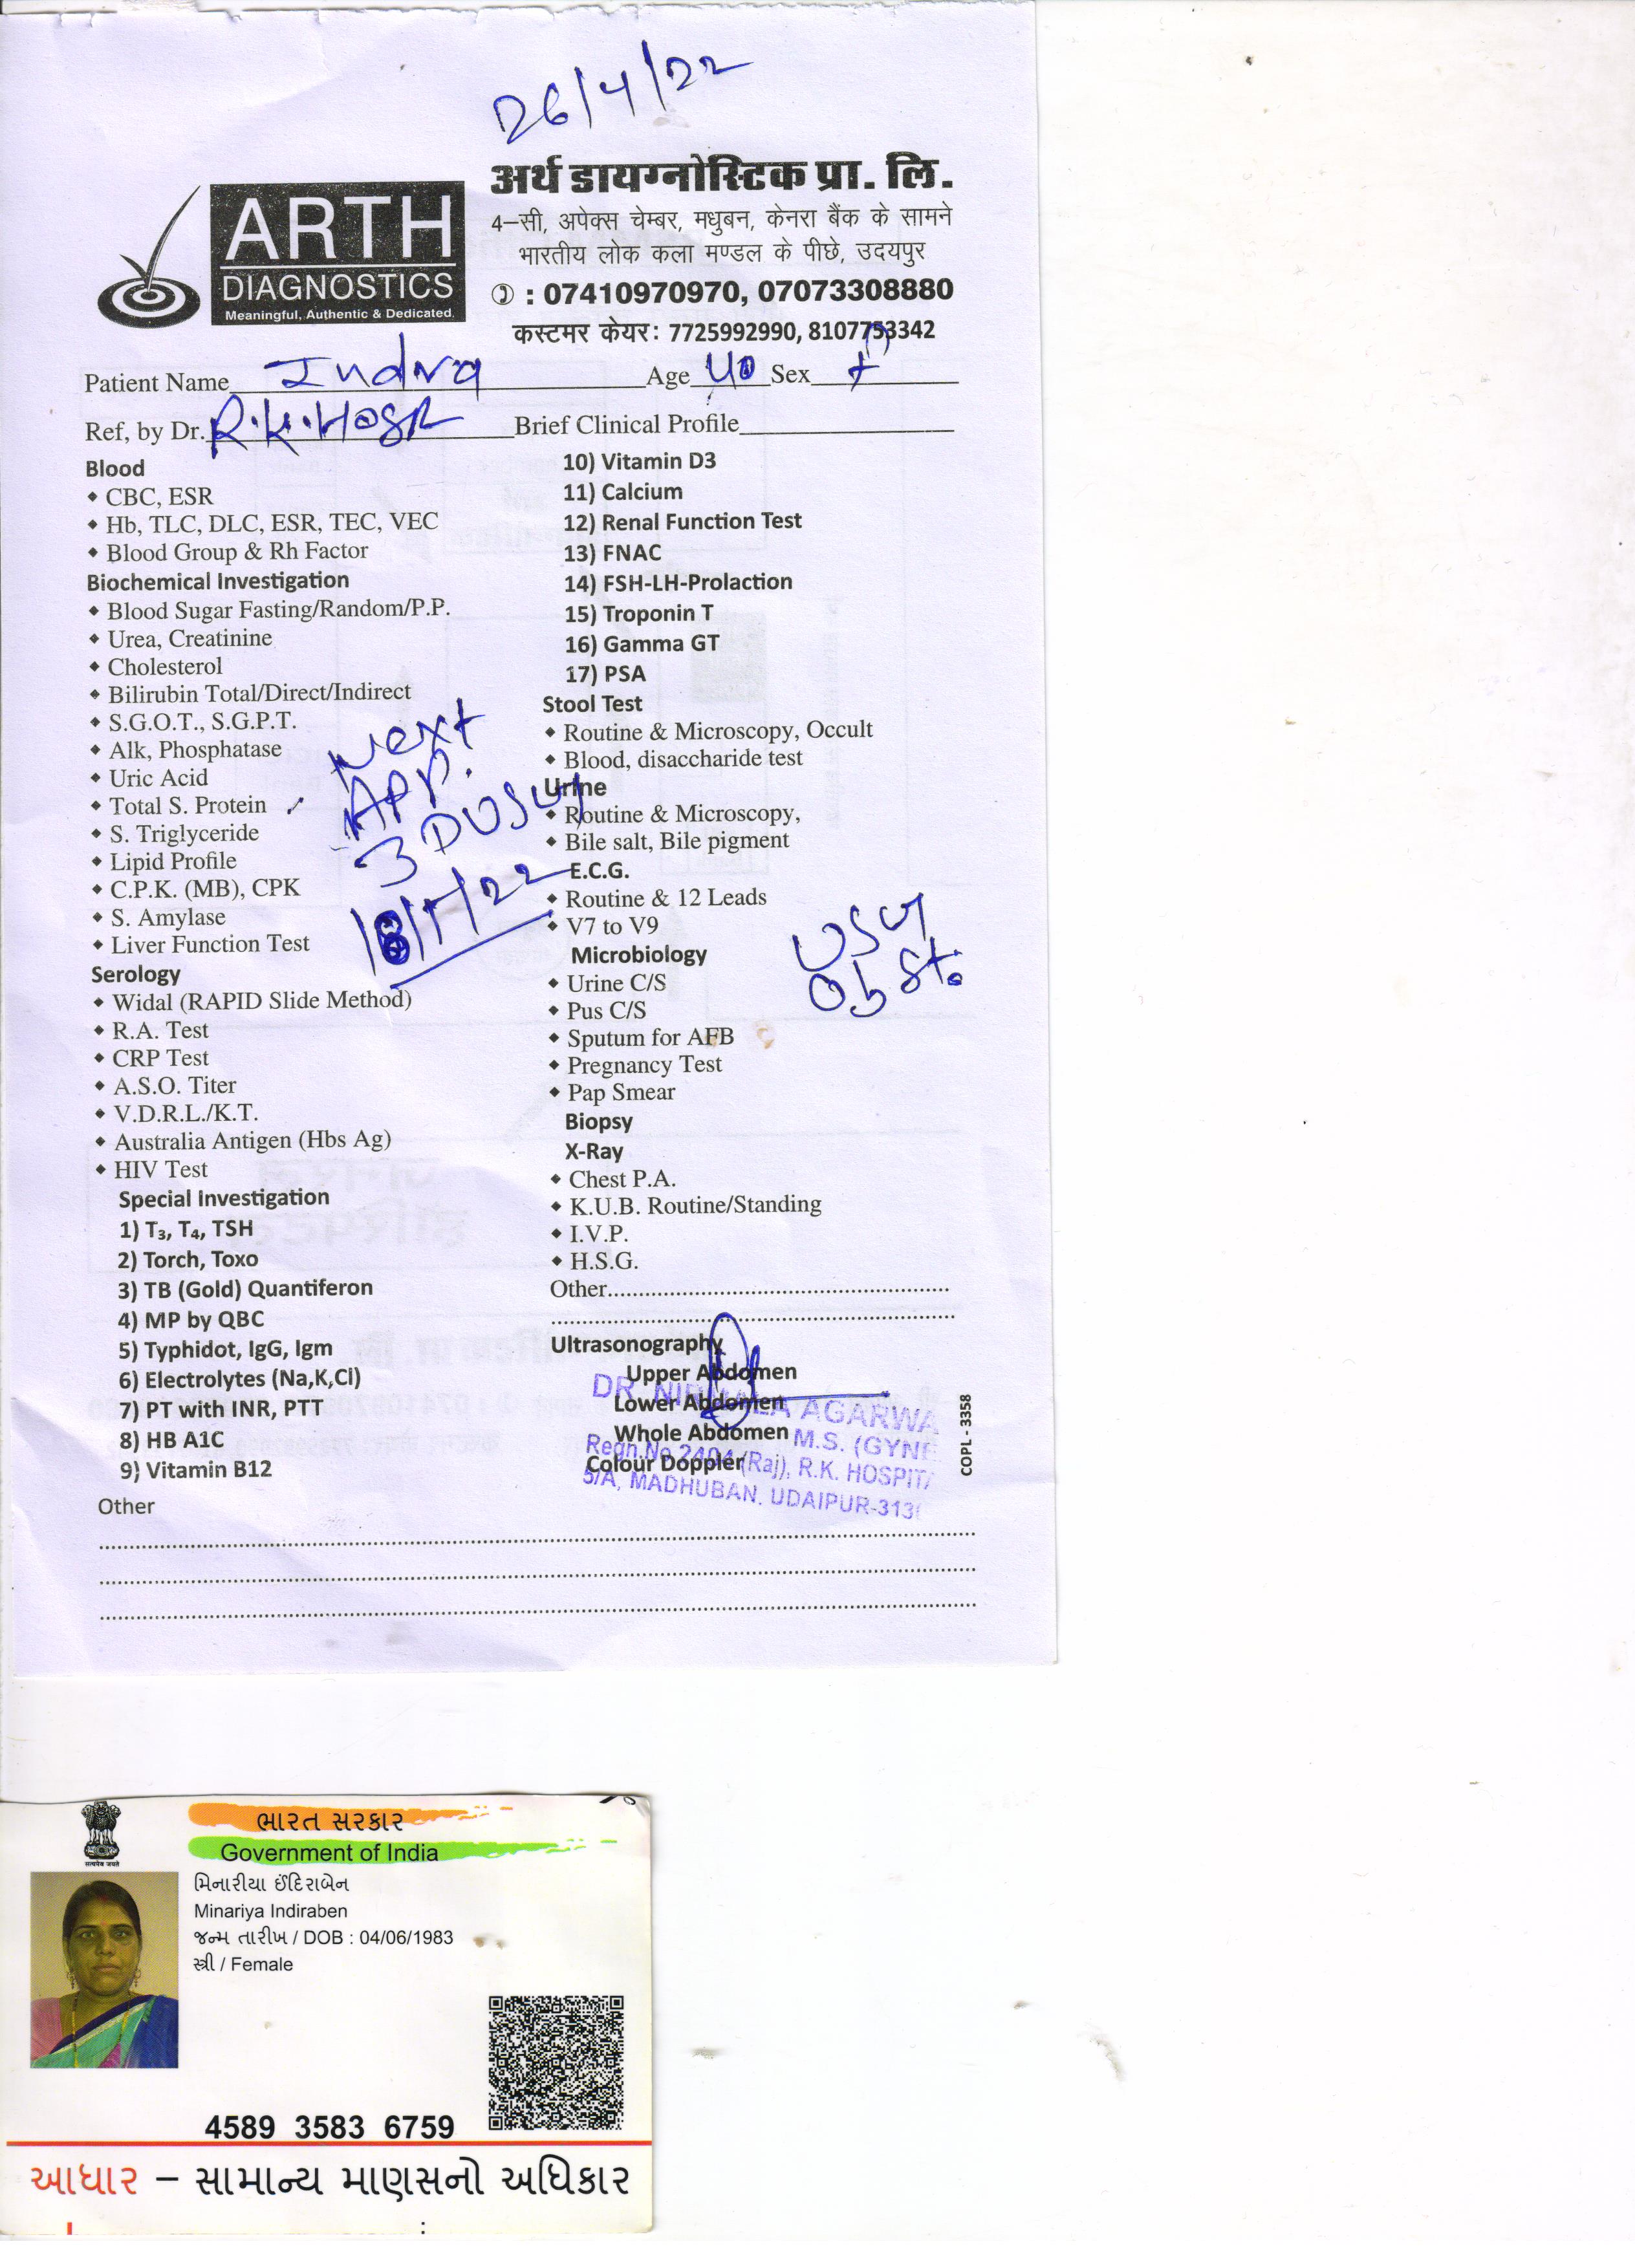 26/4/22
ARTH
DIAGNOSTICS
Meaningful, Authentic & Dedicated.
अर्थ डायग्नोस्टिक प्रा. लि.
4–सी, अपेक्स चेम्बर, मधुबन, केनरा बैंक के सामने
भारतीय लोक कला मण्डल के पीछे, उदयपुर
: 07410970970, 07073308880
कस्टमर केयर: 7725992990, 8107753342
Patient Name Indra Age 40 Sex f
Ref, by Dr. R.K.Hosp Brief Clinical Profile
Blood
CBC, ESR
Hb, TLC, DLC, ESR, TEC, VEC
Blood Group & Rh Factor
Biochemical Investigation
Blood Sugar Fasting/Random/P.P.
Urea, Creatinine
Cholesterol
Bilirubin Total/Direct/Indirect
S.G.O.T., S.G.P.T.
Alk, Phosphatase
Uric Acid
Total S. Protein
S. Triglyceride
Lipid Profile
C.P.K. (MB), CPK
S. Amylase
Liver Function Test
Serology
Widal (RAPID Slide Method)
R.A. Test
CRP Test
A.S.O. Titer
V.D.R.L./K.T.
Australia Antigen (Hbs Ag)
HIV Test
Special Investigation
1) T₃, T₄, TSH
2) Torch, Toxo
3) TB (Gold) Quantiferon
4) MP by QBC
5) Typhidot, IgG, Igm
6) Electrolytes (Na,K,Cl)
7) PT with INR, PTT
8) HB A1C
9) Vitamin B12
Other
Next
APP.
3D USG
18/5/22
10) Vitamin D3
11) Calcium
12) Renal Function Test
13) FNAC
14) FSH-LH-Prolaction
15) Troponin T
16) Gamma GT
17) PSA
Stool Test
Routine & Microscopy, Occult
Blood, disaccharide test
Urine
Routine & Microscopy,
Bile salt, Bile pigment
E.C.G.
Routine & 12 Leads
V7 to V9
Microbiology
Urine C/S
Pus C/S
Sputum for AFB
Pregnancy Test
Pap Smear
Biopsy
X-Ray
Chest P.A.
K.U.B. Routine/Standing
I.V.P.
H.S.G.
Other
USG
Obst.
Ultrasonography
Upper Abdomen
Lower Abdomen
Whole Abdomen
Colour Doppler
DR. AGARWA
M.S. (GYNE
Regn.No 2404 (Raj), R.K. HOSPIT
5/A, MADHUBAN, UDAIPUR-313
COPL - 3358
ભારત સરકાર
Government of India
सत्यमेव जयते
મિનારીયા ઈંદિરાબેન
Minariya Indiraben
જન્મ તારીખ / DOB : 04/06/1983
સ્ત્રી / Female
4589 3583 6759
આધાર – સામાન્ય માણસનો અધિકાર